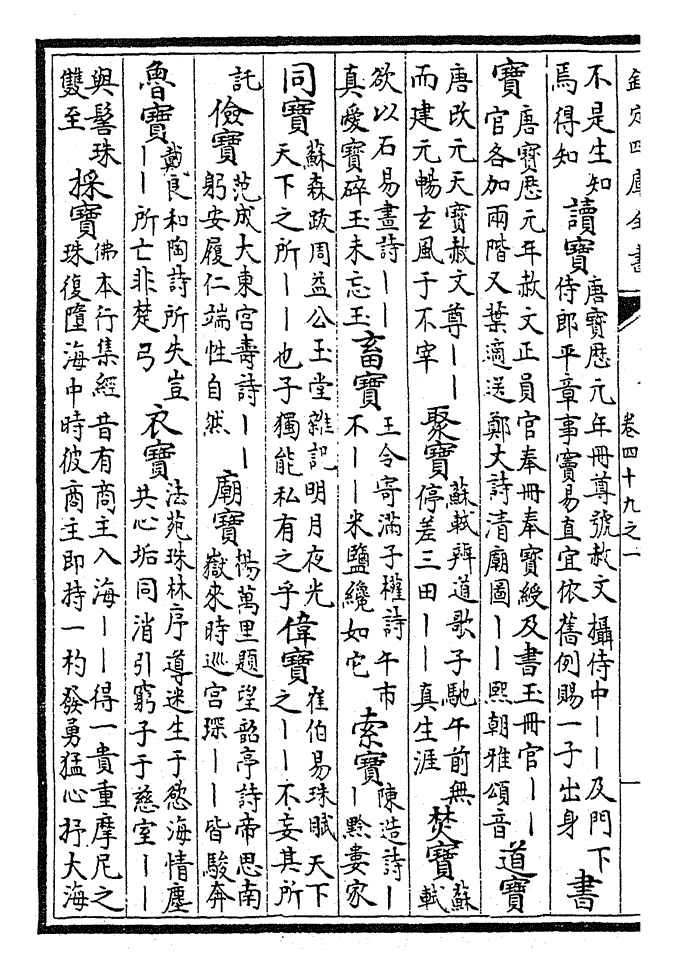 欽定四庫全書
卷四十九之一
不是生知
焉得知
讀寶
唐寶歷元年冊尊號赦文攝侍中——及門下
侍郎平章事竇易直宜依舊例賜一子出身
書
寶
唐寶歷元年赦文正員官奉冊奉寶綬及書玉冊官——
官各加兩階又葉適送鄭大詩清廟圖——熙朝雅頌音
道寶
唐改元天寶赦文尊——
而建元暢玄風于不宰
聚寶
蘇軾辨道歌子馳午前無
停差三田——真生涯
焚寶
蘇
軾
欲以石易畫詩——
真愛寶碎玉未忘玉
畜寶
王令寄滿子權詩午市
不——米鹽纔如它
索寶
陳造詩—
—黔婁家
同寶
蘇森跋周益公玉堂雜記明月夜光
天下之所——也子獨能私有之乎
偉寶
崔伯易珠賦天下
之——不妄其所
託
儉寶
范成大東宮壽詩——
躬安履仁端性自然
廟寶
楊萬里題望韶亭詩帝思南
嶽來時巡宮琛——皆駿奔
魯寶
戴良和陶詩所失豈
——所亡非楚弓
衣寶
法苑珠林序導迷生于慾海情塵
共心垢同消引窮子于慈室——
與髻珠
雙至
採寶
佛本行集經昔有商主入海——得一貴重摩尼之
珠復墮海中時彼商主即持一杓發勇猛心抒大海